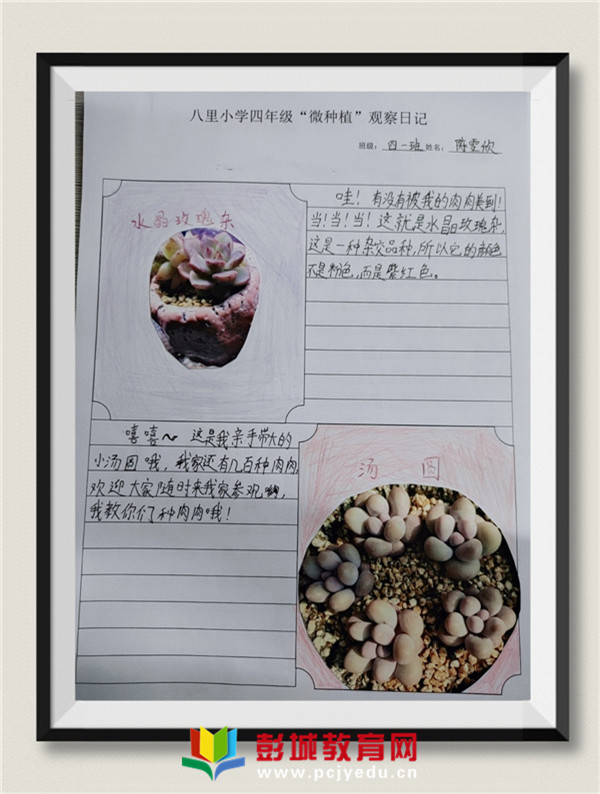 八里小学四年级“微种植”观察日记
班级：四一班 姓名：陈雯欣
水晶玫瑰杂
哇！有没有被我的肉肉美到！
当！当！当！这就是水晶玫瑰杂，
这是一种杂交品种，所以它的颜色
不是粉色，而是紫红色。
嘻嘻～ 这是我亲手带大的
小汤圆哦，我家还有几百种肉肉，
欢迎大家随时来我家参观哟，
我教你们种肉肉哦！
汤圆
彭城教育网
www.pcjyedu.cn